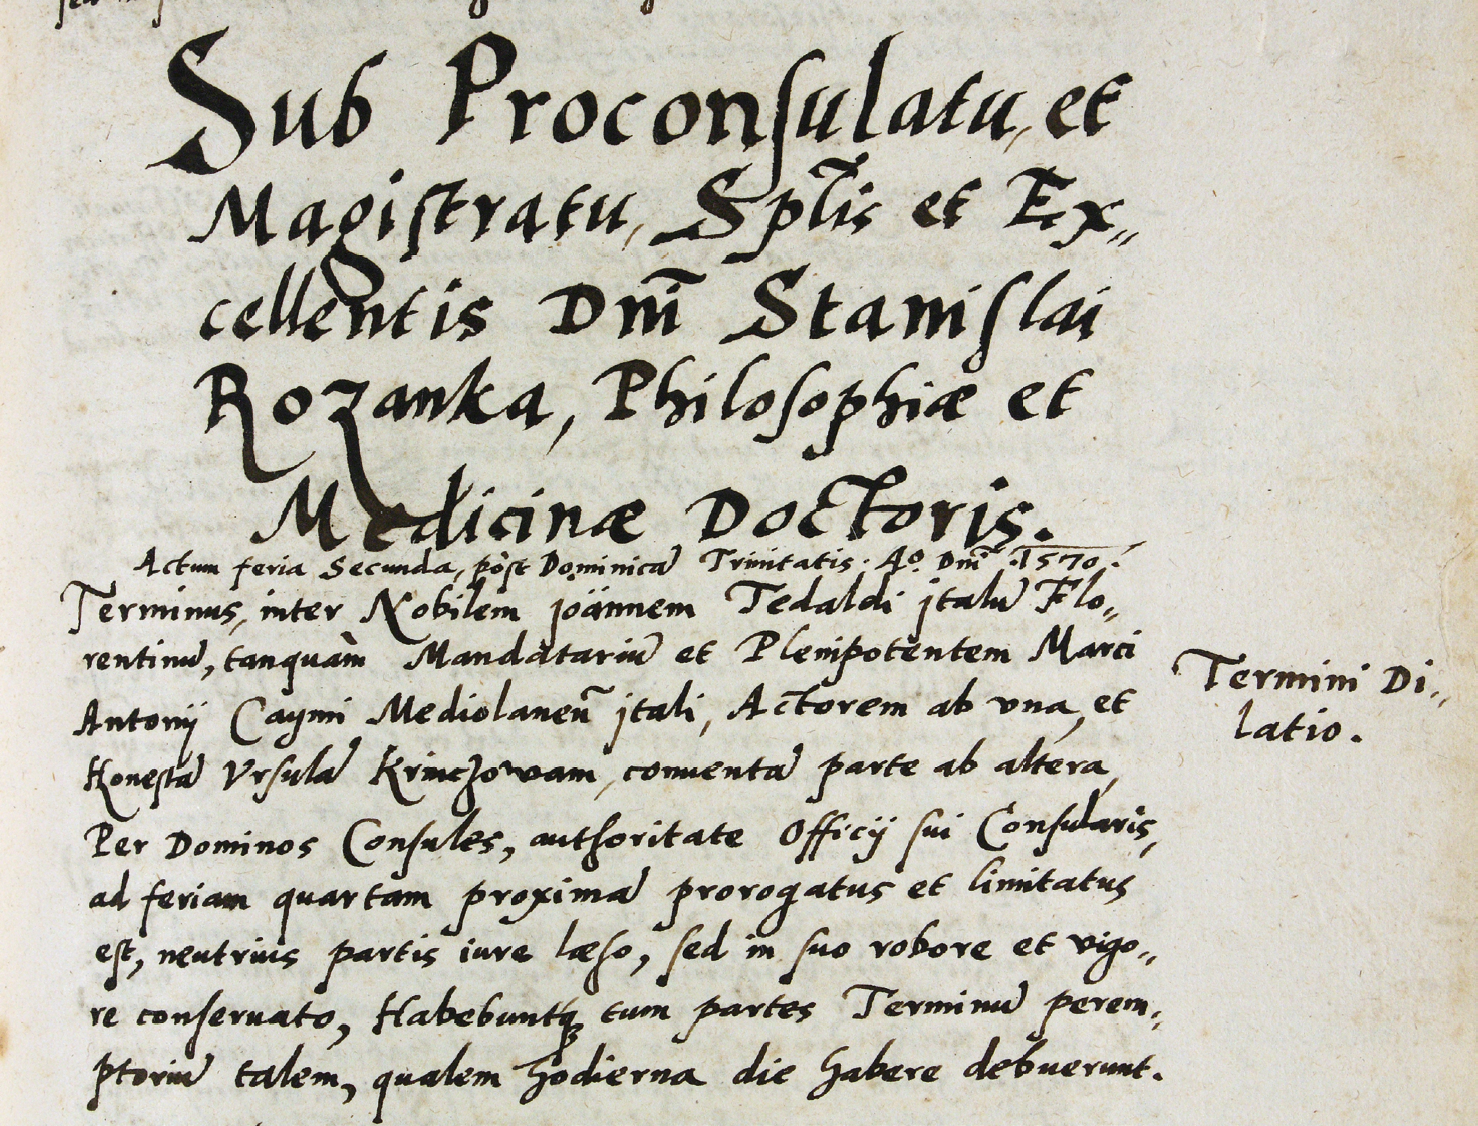 Sub Proconsulatu, et
Magistratu, Spl̃is et Ex„
cellentis Dnĩ Stanislai
Rozanka, Philosophiæ et
Medicinæ Doctoris.
Actum feria Secunda, pòst Dominicã Trinitatis. Aº. Dnĩ .1570.
Terminus, inter Nobilem joännem Tedaldi jtalũ Flo„
rentinũ, tanquàm Mandatariũ et Plenipotentem Marci
Antonij Caymi Mediolaneñ jtali, Actorem ab vna, et
Honestã Vrsulã Krinczowam, conuentã parte ab altera,
Per Dominos Consules, authoritate Officij sui Consularis,
ad feriam quartam proximã prorogatus et limitatus
est, neutrius partis iure læso, sed in suo robore et vigo„
re conseruato, Habebuntq; tum partes Terminũ perem„
ptoriũ talem, qualem hodierna die habere debuerunt.
Termini Di„
latio.